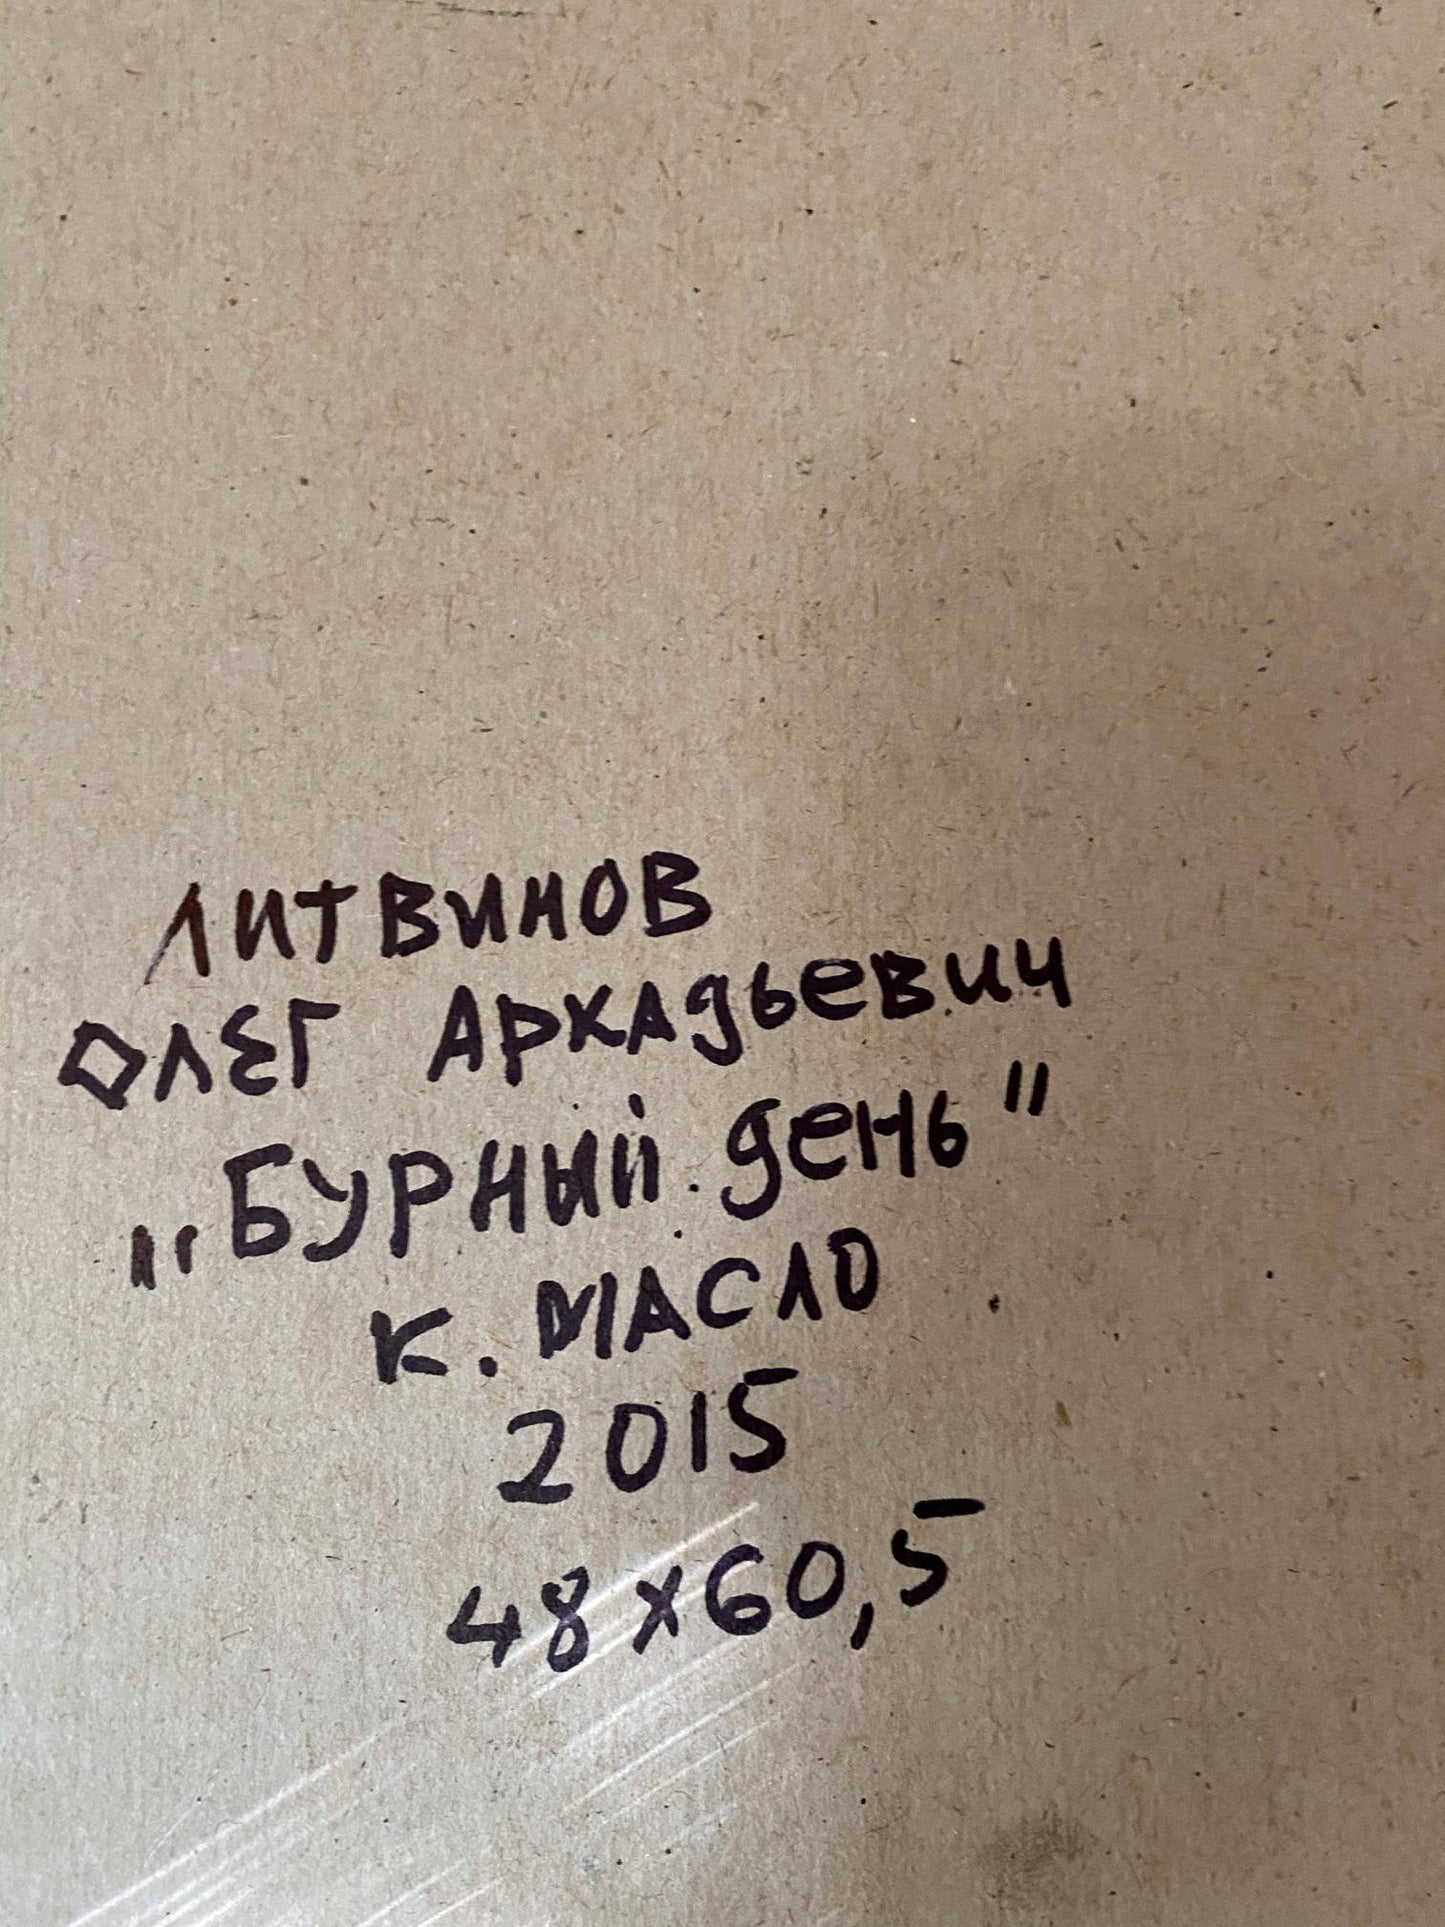 ЛИТВИНОВ
ОЛЕГ АРКАДЬЕВИЧ
„БУРНЫЙ ДЕНЬ"
К. МАСЛО
2015
48х60,5